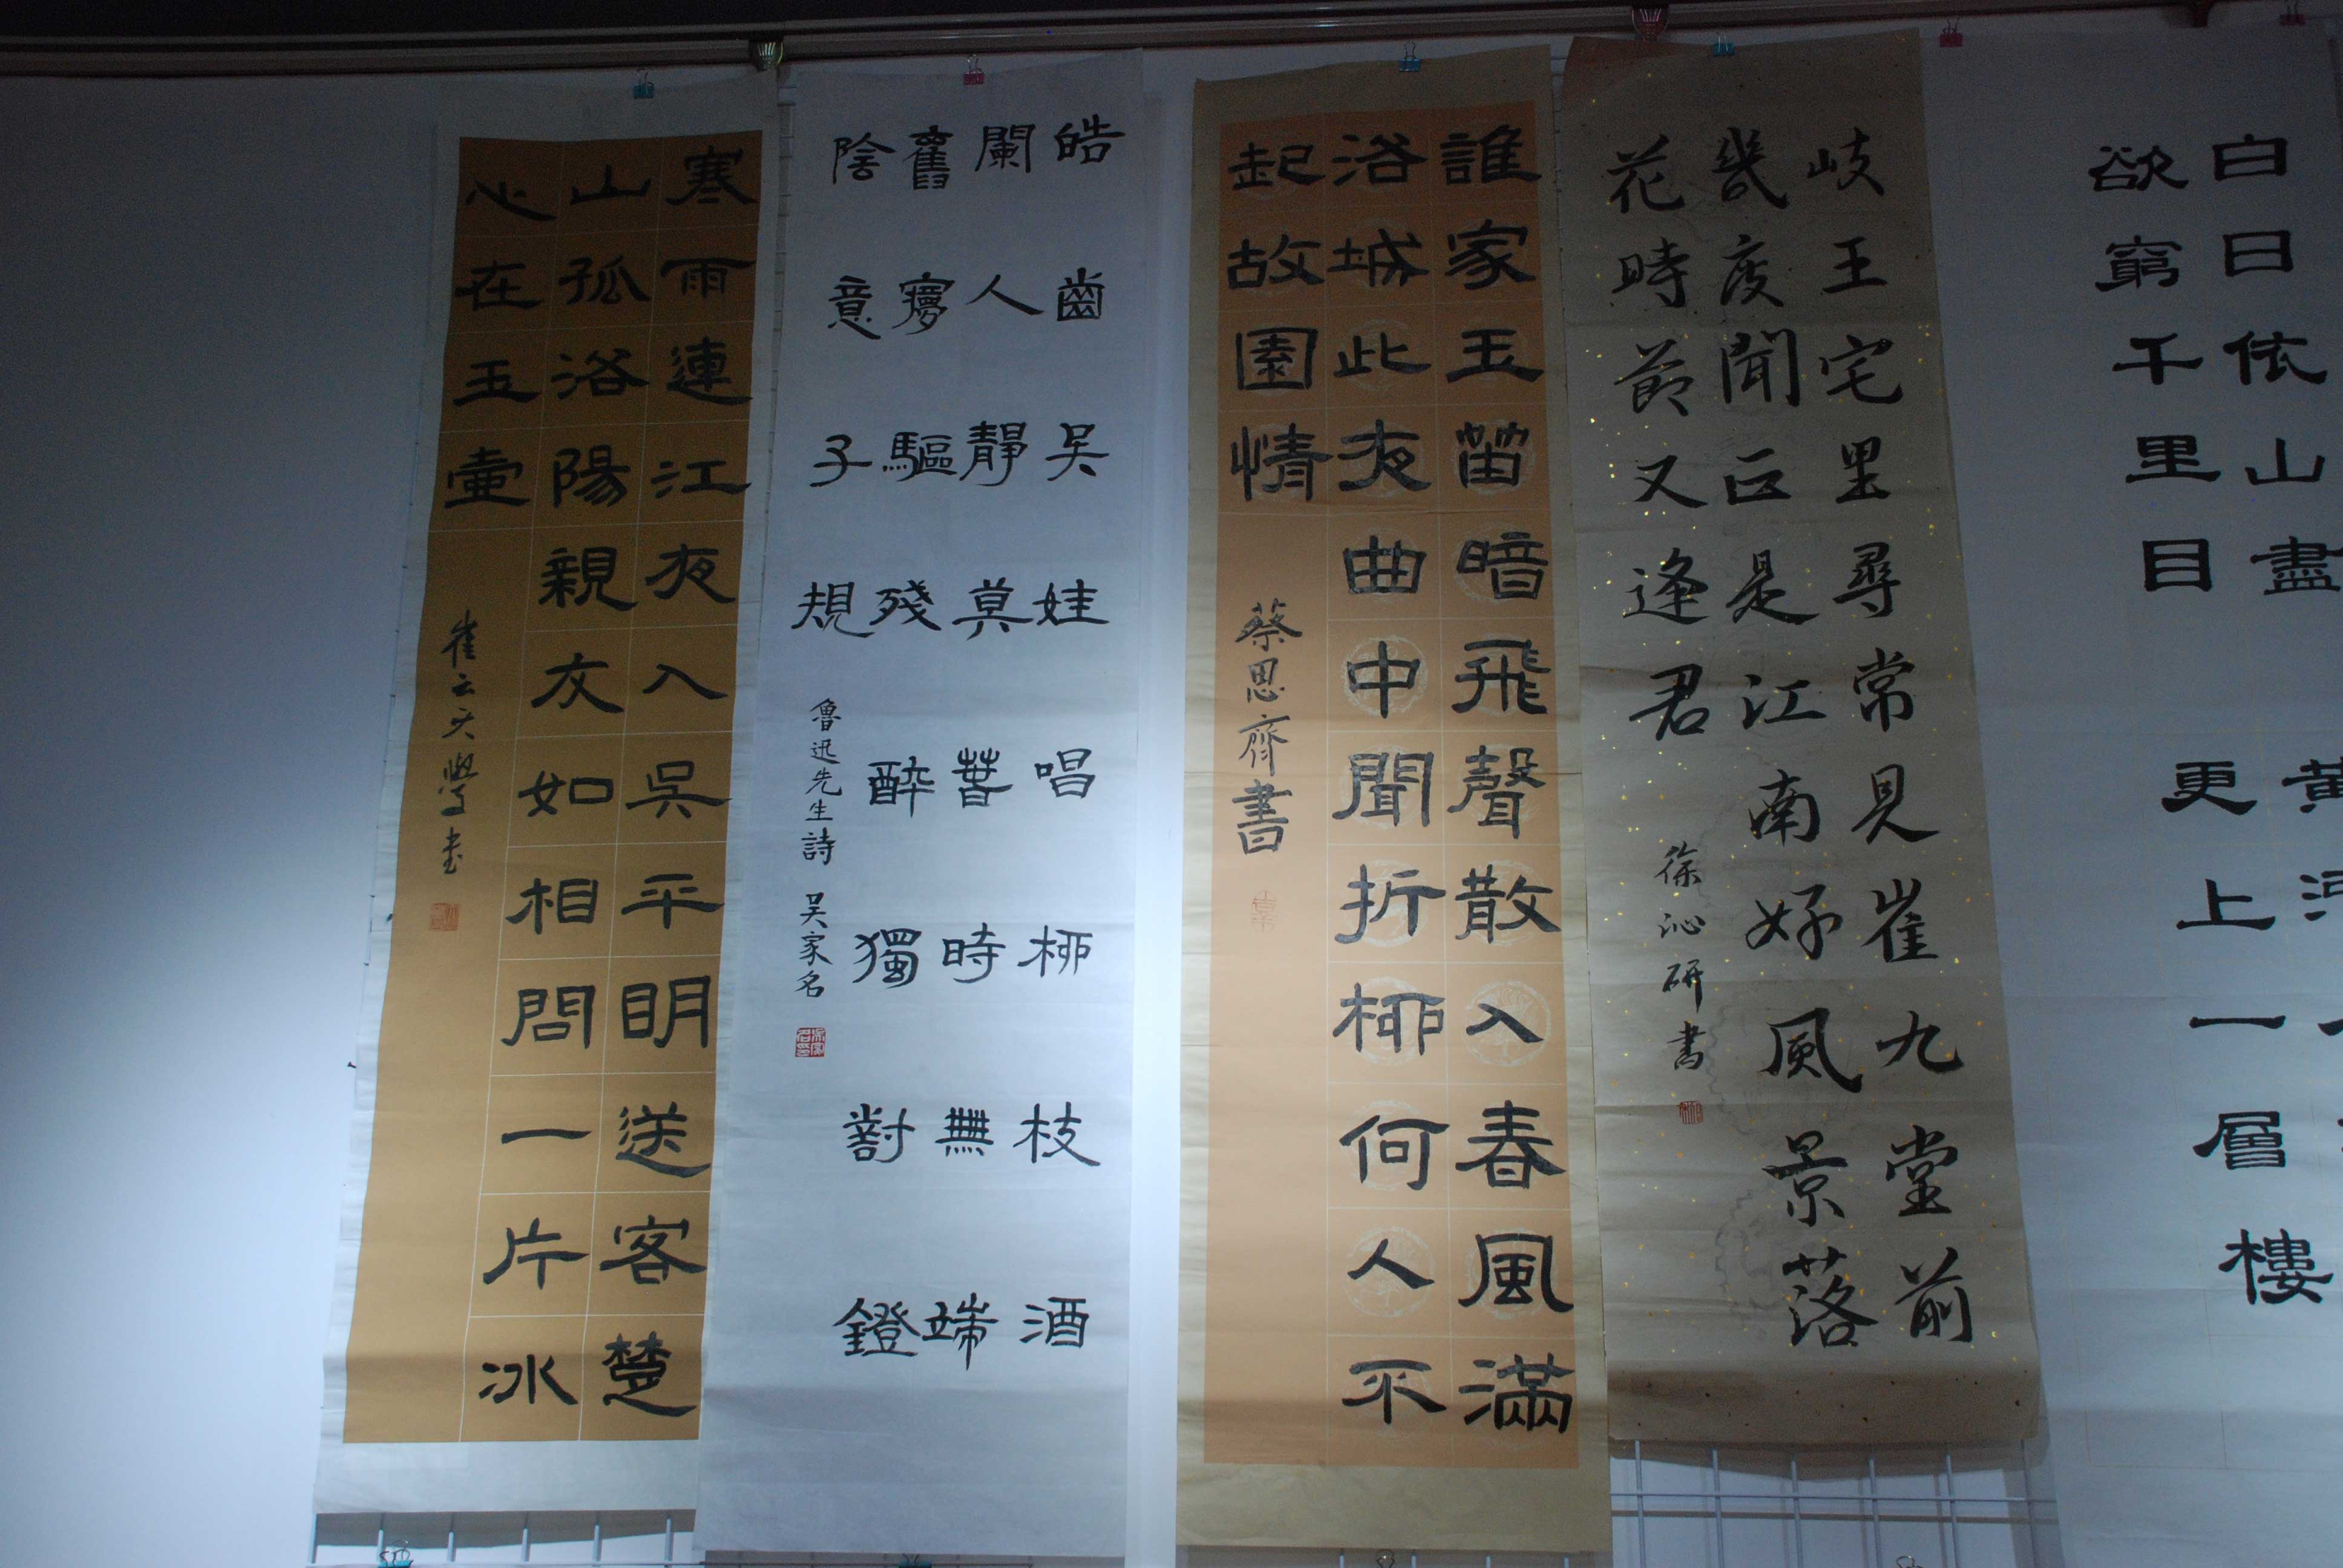 白日依山盡黄河
欲窮千里目更上一層樓
岐王宅里尋常見崔九堂前
幾度聞正是江南好風景落
花時節又逢君
徐沁研書
誰家玉笛暗飛聲散入春風滿
洛城此夜曲中聞折柳何人不
起故園情
蔡思齊書
皓齒吴娃唱柳枝酒
闌人靜莫萅時無端
舊夢驅殘醉獨對鐙
陰意子規
魯迅先生詩 吴家名
寒雨連江夜入吳平明送客楚
山孤洛陽親友如相問一片冰
心在玉壺
崔云天书